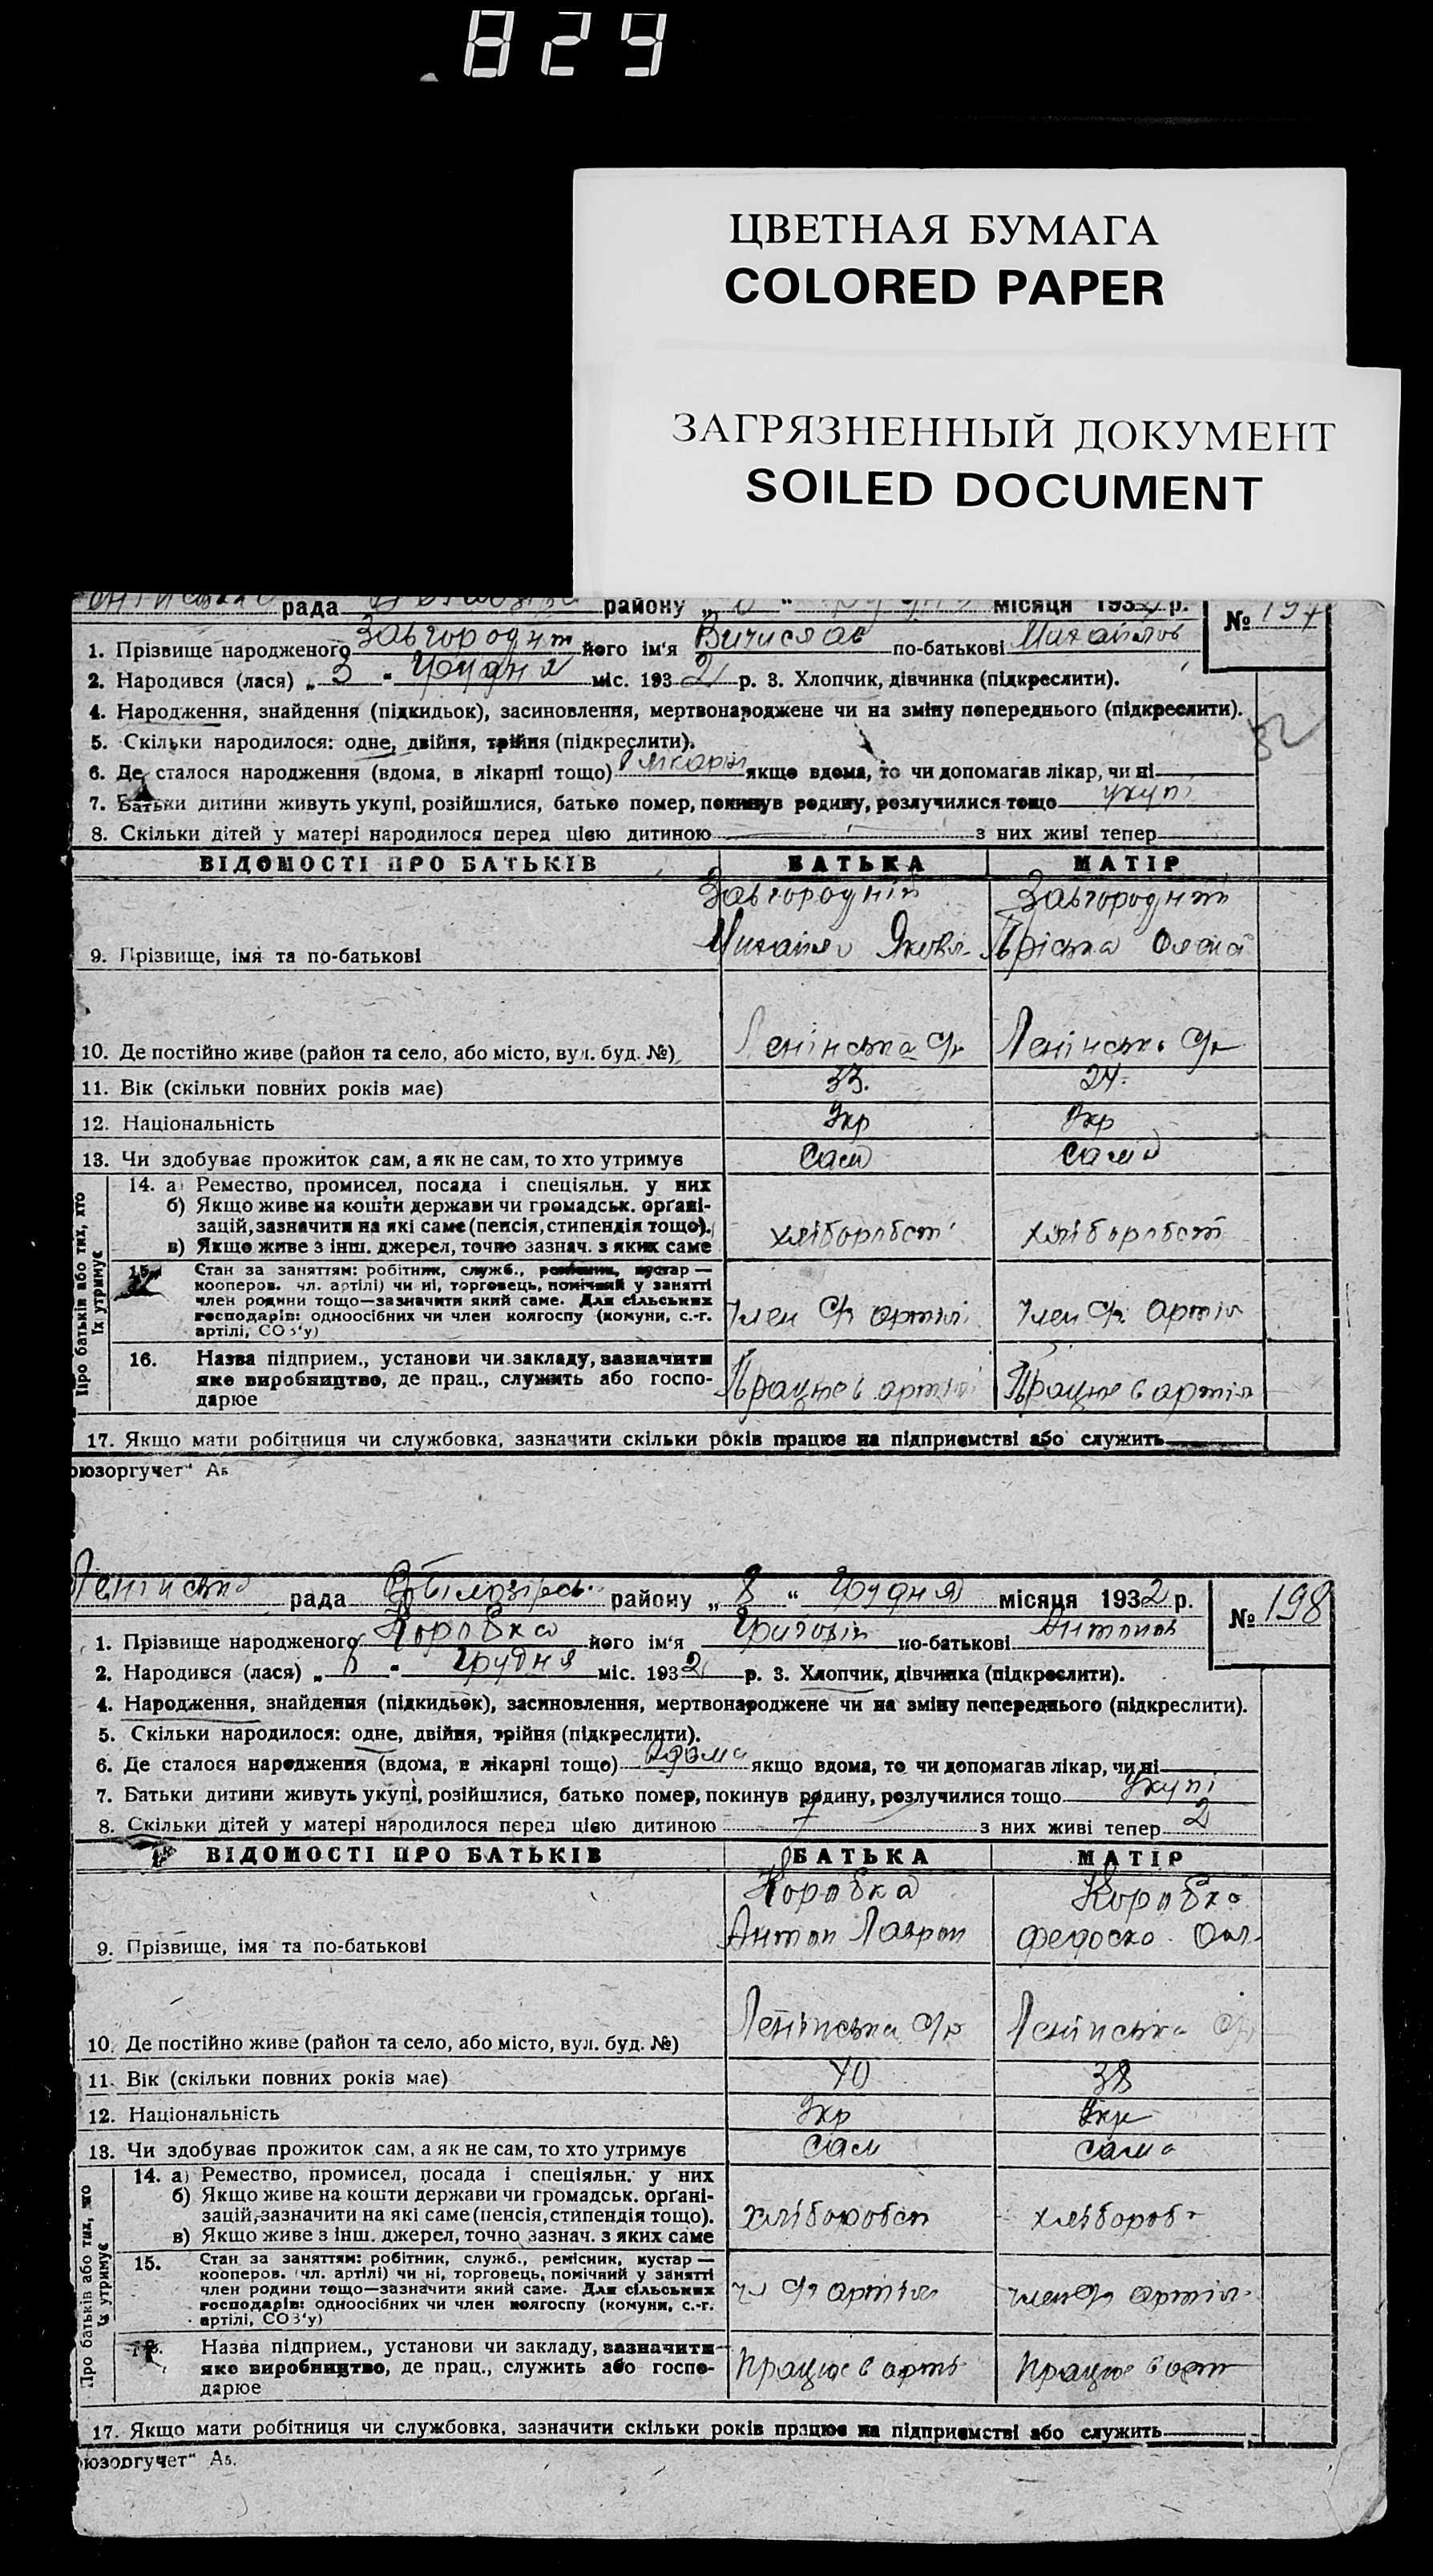 829
ЦВЕТНАЯ БУМАГА
COLORED PAPER
ЗАГРЯЗНЕННЫЙ ДОКУМЕНТ
SOILED DOCUMENT
рада району „ “ місяця 1932 р. № 197
1. Прізвище народженого Завгородній його ім'я Вичислав по-батькові Михайлов
2. Народився (лася) „ 3 “ Грудня міс. 1932 р. 3. Хлопчик, дівчинка (підкреслити).
4. Народження, знайдення (підкидьок), засиновлення, мертвонароджене чи на зміну попереднього (підкреслити).
5. Скільки народилося: одне, двійня, трійня (підкреслити).
6. Де сталося народження (вдома, в лікарні тощо) якщо вдома, то чи допомагав лікар, чи ні
7. Батьки дитини живуть укупі, розійшлися, батько помер, покинув родину, розлучилися тощо укупі
8. Скільки дітей у матері народилося перед цією дитиною з них живі тепер
ВІДОМОСТІ ПРО БАТЬКІВ БАТЬКА МАТІР
Завгородній Завгородня
9. Прізвище, імя та по-батькові Михайло Яковл
10. Де постійно живе (район та село, або місто, вул. буд. №) Ленінська с/р Ленінська с/р
11. Вік (скільки повних років має) 33. 24.
12. Національність Укр Укр
13. Чи здобуває прожиток сам, а як не сам, то хто утримує сам сама
Про батьків або тих, хто їх утримує
14. а) Ремество, промисел, посада і спеціяльн. у них
б) Якщо живе на кошти держави чи громадськ. орґані-
зацій, зазначити на які саме (пенсія, стипендія тощо). хліборобст хліборобст
в) Якщо живе з інш. джерел, точно зазнач. з яких саме
15. Стан за заняттям: робітник, служб., ремісник, кустар —
кооперов. чл. артілі) чи ні, торговець, помічний у занятті
член родини тощо—зазначити який саме. Для сільських
господарів: одноосібних чи член колгоспу (комуни, с.-г. Член артілі Член артіл
артілі, СОЗ'у)
16. Назва підприєм., установи чи закладу, зазначити
яке виробництво, де прац., служить або госпо- Працює в артіл Працює в артіл
дарює
17. Якщо мати робітниця чи службовка, зазначити скільки років працює на підприємстві або служить
юзоргучет" Аз
Ленінська рада району „ 8 “ Грудня місяця 1932 р. № 198
1. Прізвище народженого Коровка його ім'я Григорій по-батькові Антонов
2. Народився (лася) „ “ Грудня міс. 1932 р. 3. Хлопчик, дівчинка (підкреслити).
4. Народження, знайдення (підкидьок), засиновлення, мертвонароджене чи на зміну попереднього (підкреслити).
5. Скільки народилося: одне, двійня, трійня (підкреслити).
6. Де сталося народження (вдома, в лікарні тощо) вдома якщо вдома, то чи допомагав лікар, чи ні
7. Батьки дитини живуть укупі, розійшлися, батько помер, покинув родину, розлучилися тощо укупі
8. Скільки дітей у матері народилося перед цією дитиною 7 з них живі тепер 2
ВІДОМОСТІ ПРО БАТЬКІВ БАТЬКА МАТІР
Коровка Коровка
9. Прізвище, імя та по-батькові Антон Лаврон
10. Де постійно живе (район та село, або місто, вул. буд. №) Ленінська с/р Ленінська с/р
11. Вік (скільки повних років має) 40 38
12. Національність Укр Укр
13. Чи здобуває прожиток сам, а як не сам, то хто утримує сам сама
Про батьків або тих, хто їх утримує
14. а) Ремество, промисел, посада і спеціяльн. у них
б) Якщо живе на кошти держави чи громадськ. орґані-
зацій, зазначити на які саме (пенсія, стипендія тощо). хліборобст хлібороб
в) Якщо живе з інш. джерел, точно зазнач. з яких саме
15. Стан за заняттям: робітник, служб., ремісник, кустар —
кооперов. (чл. артілі) чи ні, торговець, помічний у занятті
член родини тощо—зазначити який саме. Для сільських
господарів: одноосібних чи член колгоспу (комуни, с.-г. артіл член артіл
артілі, СОЗ'у)
Назва підприєм., установи чи закладу, зазначити
яке виробництво, де прац., служить або госпо- Працює в арть Працює в арт
дарює
17. Якщо мати робітниця чи службовка, зазначити скільки років працює на підприємстві або служить
юзоргучет" Аз.